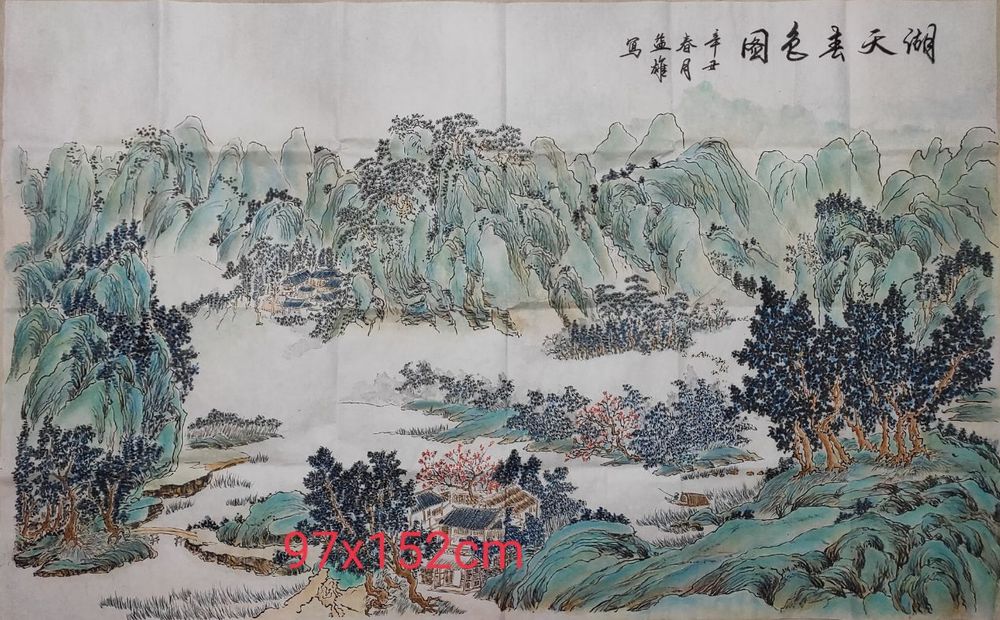 湖天春色圖
辛丑
春月
益雄
写
97x152cm